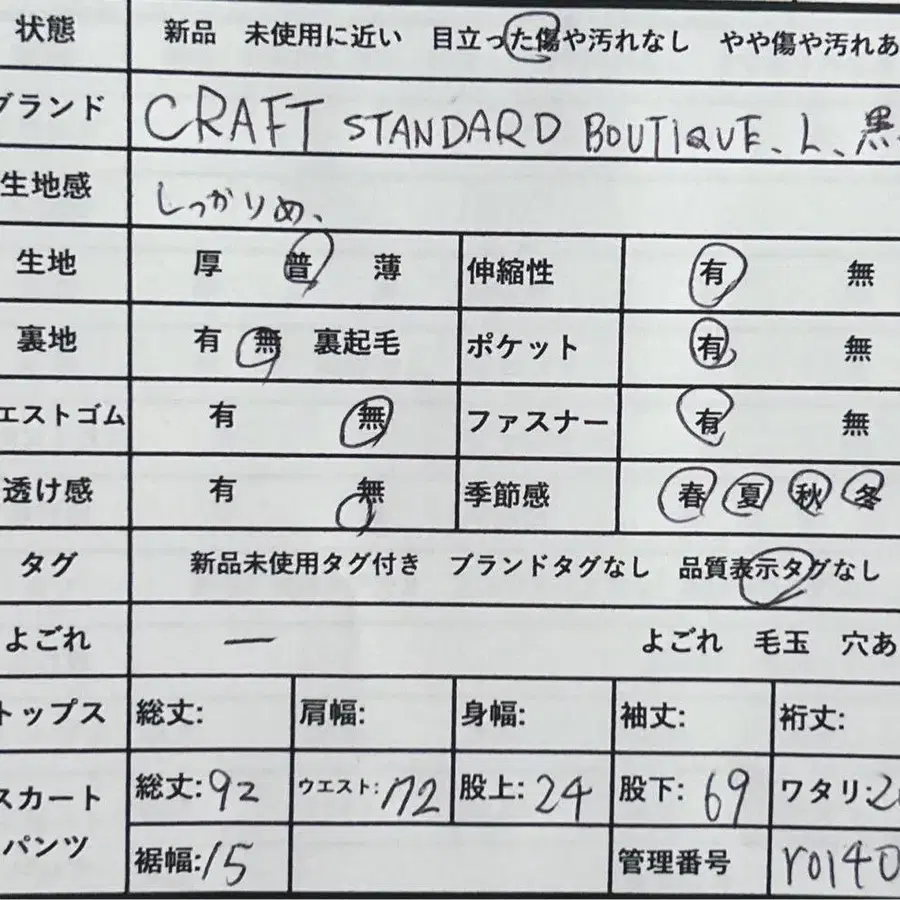 状態 新品 未使用に近い 目立った傷や汚れなし やや傷や汚れあ
ブランド CRAFT STANDARD BOUTIQUE、L、黒
生地感 しっかりめ、
生地 厚 普 薄 伸縮性 有 無
裏地 有 無 裏起毛 ポケット 有 無
エストゴム 有 無 ファスナー 有 無
透け感 有 無 季節感 春 夏 秋 冬
タグ 新品未使用タグ付き ブランドタグなし 品質表示タグなし
よごれ ー よごれ 毛玉 穴あ
トップス 総丈: 肩幅: 身幅: 袖丈: 裄丈:
スカート パンツ 総丈:92 ウエスト:72 股上:24 股下:69 ワタリ:2
裾幅:15 管理番号 r0140